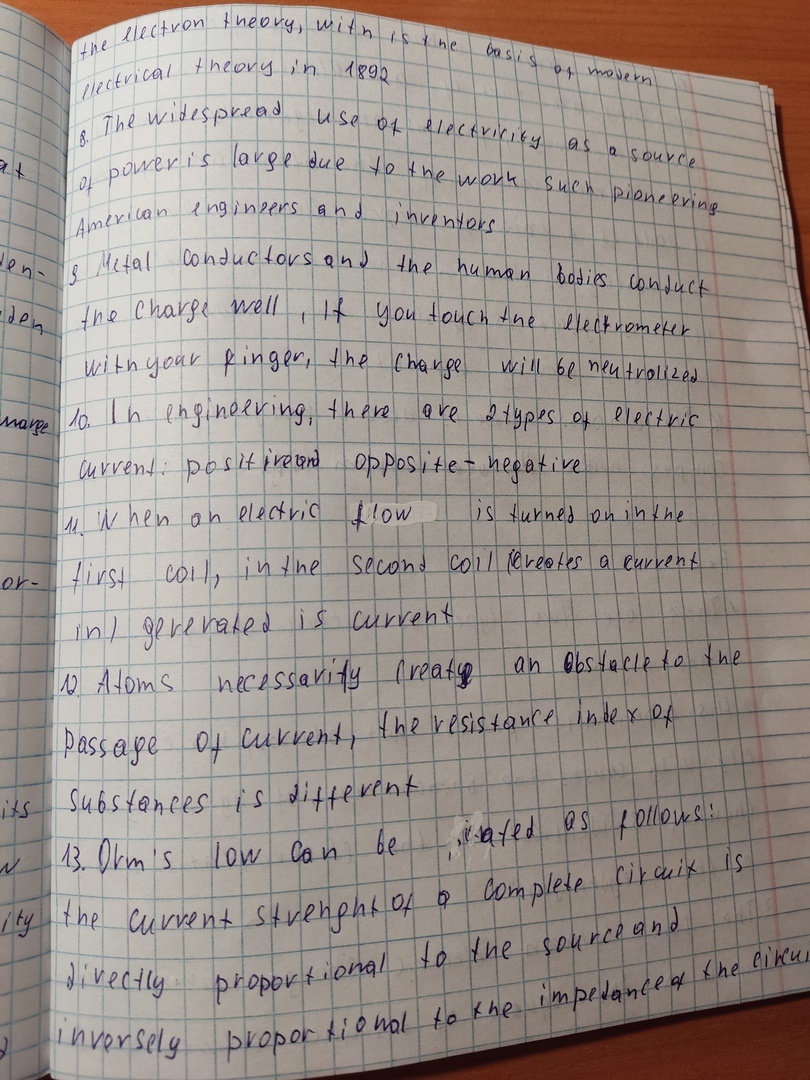 the electron theory, witn is the basis of modern
electrical theory in 1892
8. The widespread use of electricity as a source
of power is large due to the work such pioneering
American engineers and inventors
9. Metal conductors and the human bodies conduct
the charge well, If you touch the electrometer
with your finger, the charge will be neutralized
10. In engineering, there are 2 types of electric
current: positive and opposite - negative
11. When an electric flow is turned on in the
first coil, in the second coil creates a current
generated is current
12 Atoms necessarity create an obstacle to the
passage of current, the resistance index of
substances is different
13. Ohm's low can be as follows:
the current strenght of a complete circuit is
directly proportional to the source and
inversely proportional to the impedance of the circui
at
den-
iden
marge
or-
its
ity